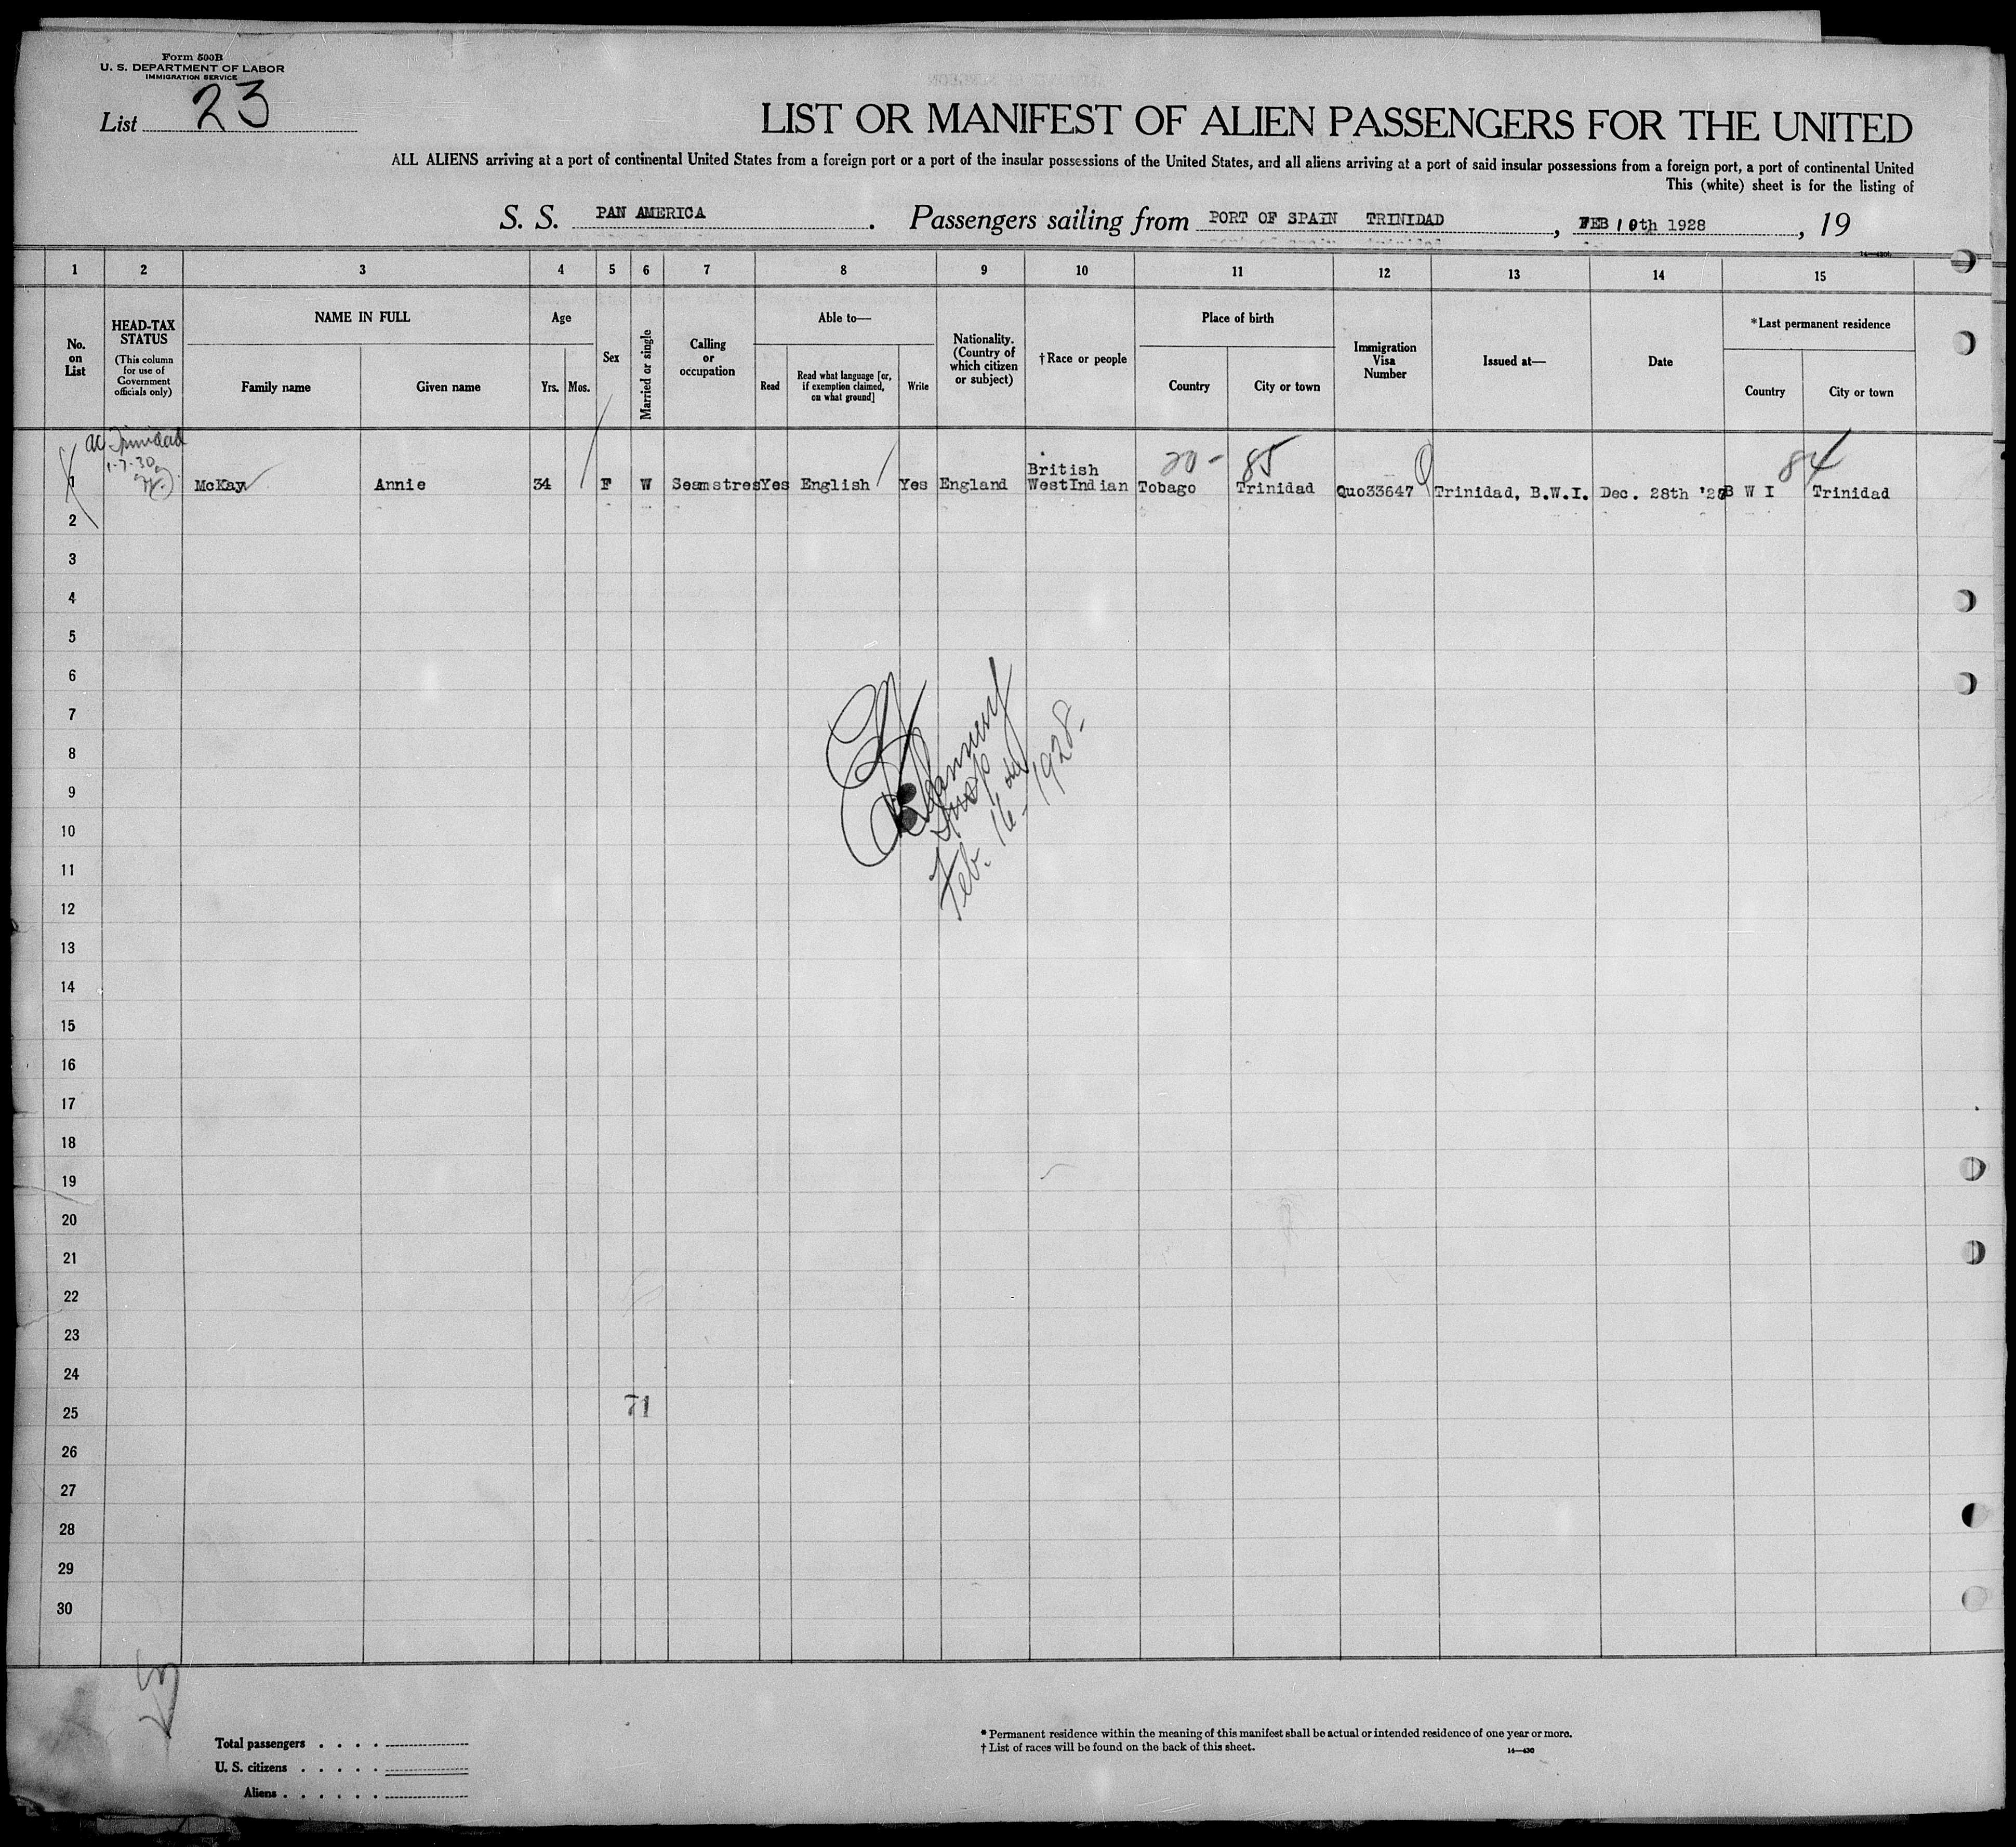 Form 500B
U. S. DEPARTMENT OF LABOR
IMMIGRATION SERVICE
List 23
LIST OR MANIFEST OF ALIEN PASSENGERS FOR THE UNITED
ALL ALIENS arriving at a port of continental United States from a foreign port or a port of the insular possessions of the United States, and all aliens arriving at a port of said insular possessions from a foreign port, a port of continental United
This (white) sheet is for the listing of
S. S. PAN AMERICA. Passengers sailing from PORT OF SPAIN TRINIDAD, FEB 10th 1928, 19
1 2 3 4 5 6 7 8 9 10 11 12 13 14 15
No. on List
HEAD-TAX STATUS
(This column for use of Government officials only)
NAME IN FULL
Family name
Given name
Age
Yrs.
Mos.
Sex
Married or single
Calling or occupation
Able to—
Read
Read what language [or, if exemption claimed, on what ground]
Write
Nationality. (Country of which citizen or subject)
†Race or people
Place of birth
Country
City or town
Immigration Visa Number
Issued at—
Date
*Last permanent residence
Country
City or town
Trinidad
1-7-30
20- 85 84
1 McKay Annie 34 F W Seamstres Yes English Yes England British WestIndian Tobago Trinidad Quo33647 Trinidad, B.W.I. Dec. 28th '27 B W I Trinidad
2
3
4
5
6
7
8
9
10
11
12
13
14
15
16
17
18
19
20
21
22
23
24
25
26
27
28
29
30
Insp
Feb. 16 1928.
71
Total passengers . . . .
U. S. citizens . . . . .
Aliens . . . . . .
* Permanent residence within the meaning of this manifest shall be actual or intended residence of one year or more.
† List of races will be found on the back of this sheet.
14—430